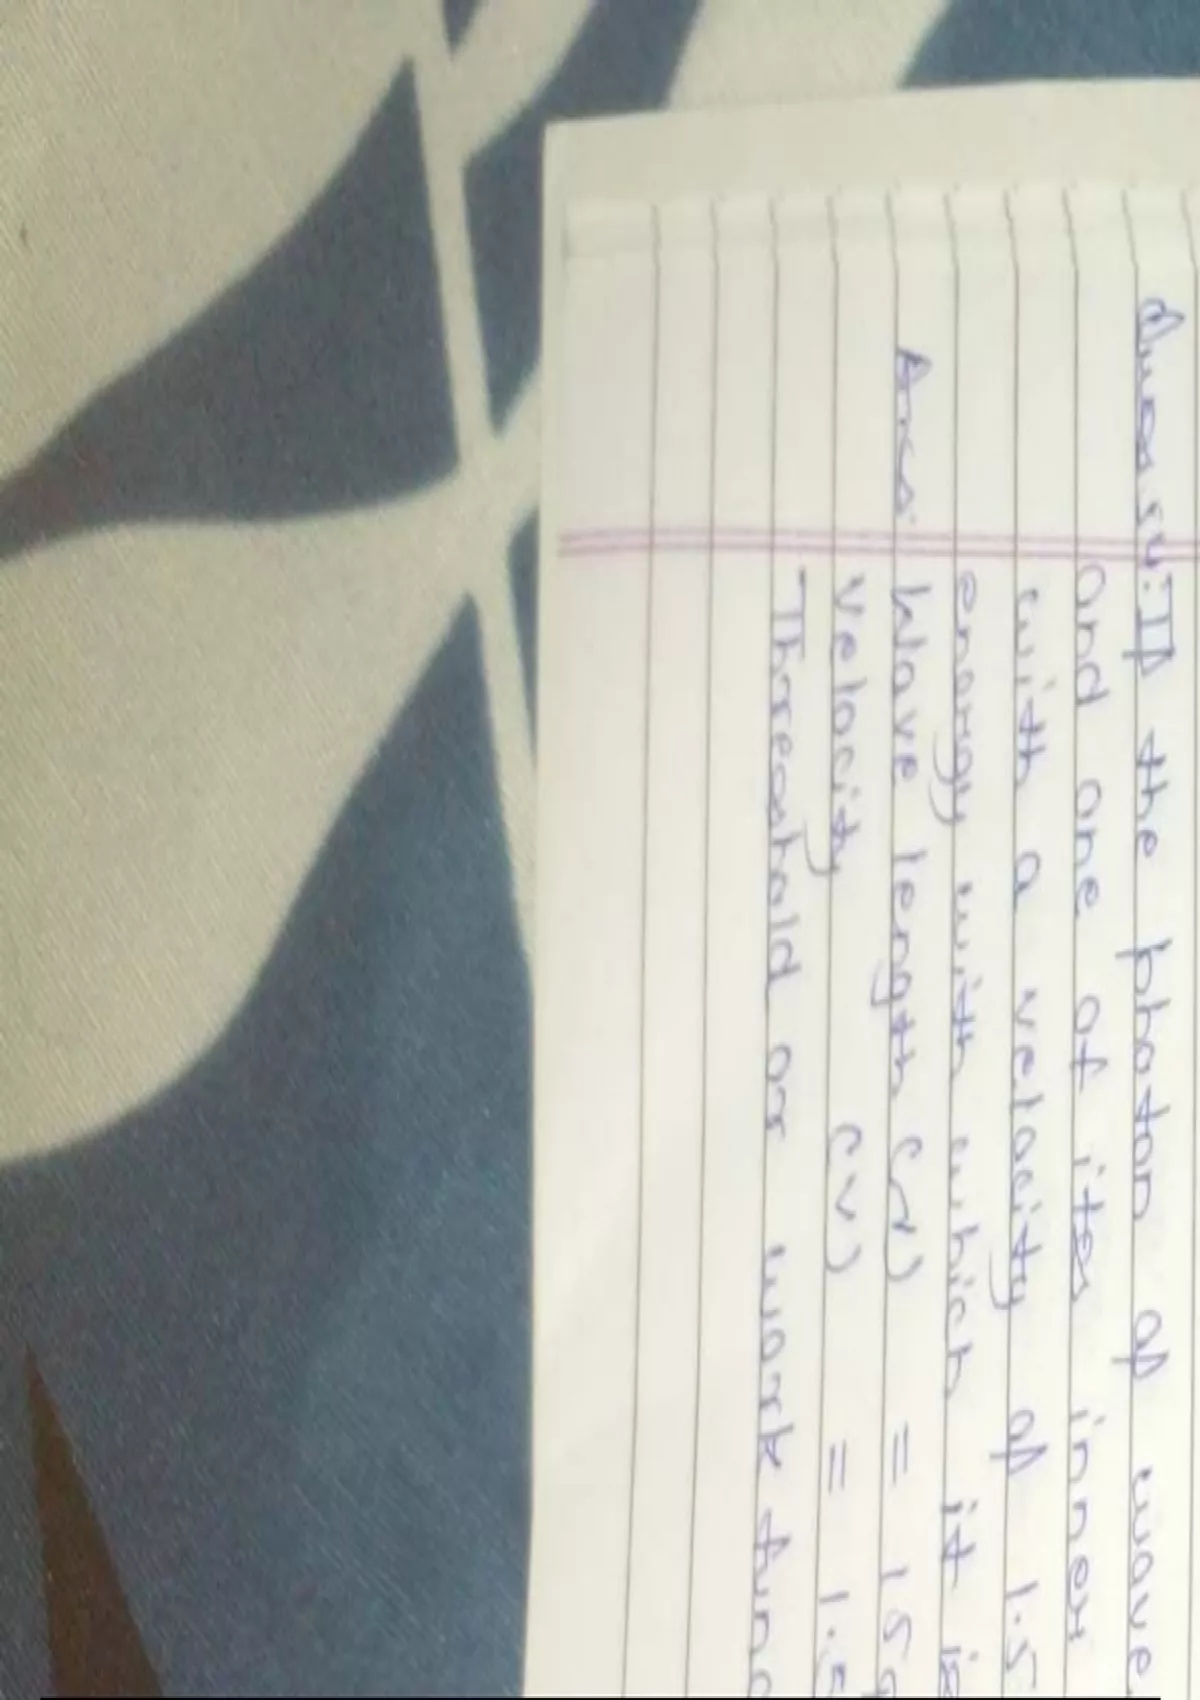 Ques 54: If the photon of wave
and one of ites inner
with a velocity of 1.5
energy with which it is
Ans: Wave length (λ) = 15
velocity (v) = 1.5
Threshold or work func